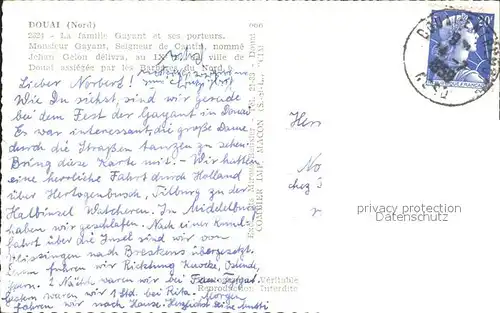 DOUAI (Nord)
2521 - La famille Gayant et ses porteurs.
Monsieur Gayant, Seigneur de Cantin, nommé
Jehan Gelon délivra, au IX ville de
Douai assiégée par les Barbares du Nord.
Lieber Norbert!
Wie Du siehst, sind wir gerade
bei dem Fest der Gayant in Douai.
Es war interessant, die große Dame
durch die Straßen tanzen zu sehen.
Bring diese Karte mit. - Wir hatten
eine herrliche Fahrt durch Holland
über Hertogenbosch, Tilburg zu der
Halbinsel Walcheren. In Middelburg
haben wir geschlafen. Nach einer Rund-
fahrt über die Insel sind wir von
Vlissingen nach Breskens übergesetzt.
Dann fuhren wir Richtung Knocke, Ostende,
2 Nächte waren wir bei Frau
Gestern waren wir 1 Std. bei Rita. Morgen
fahren wir nach Hause. Herzlichst Deine Mutti
COMBIER IMP. MACON
Véritable
Reproduction Interdite
Herr
No
chez
20F
privacy protection
Datenschutz